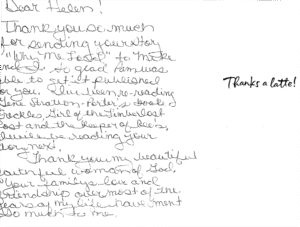 Dear Helen!
Thank you so much
for sending your story
"Why Me Lord?" to Mike
and so glad Pam was
able to get it published
for you. I've been re-reading
Gene Stratton-Porter's books
Freckles, Girl of the Limberlost
and the keeper of bees,
be reading your
next.
Thank you my beautiful
faithful woman of God.
Your family's love and
friendship over most of the
years of my life have ment
so much to me.
Thanks a latte!